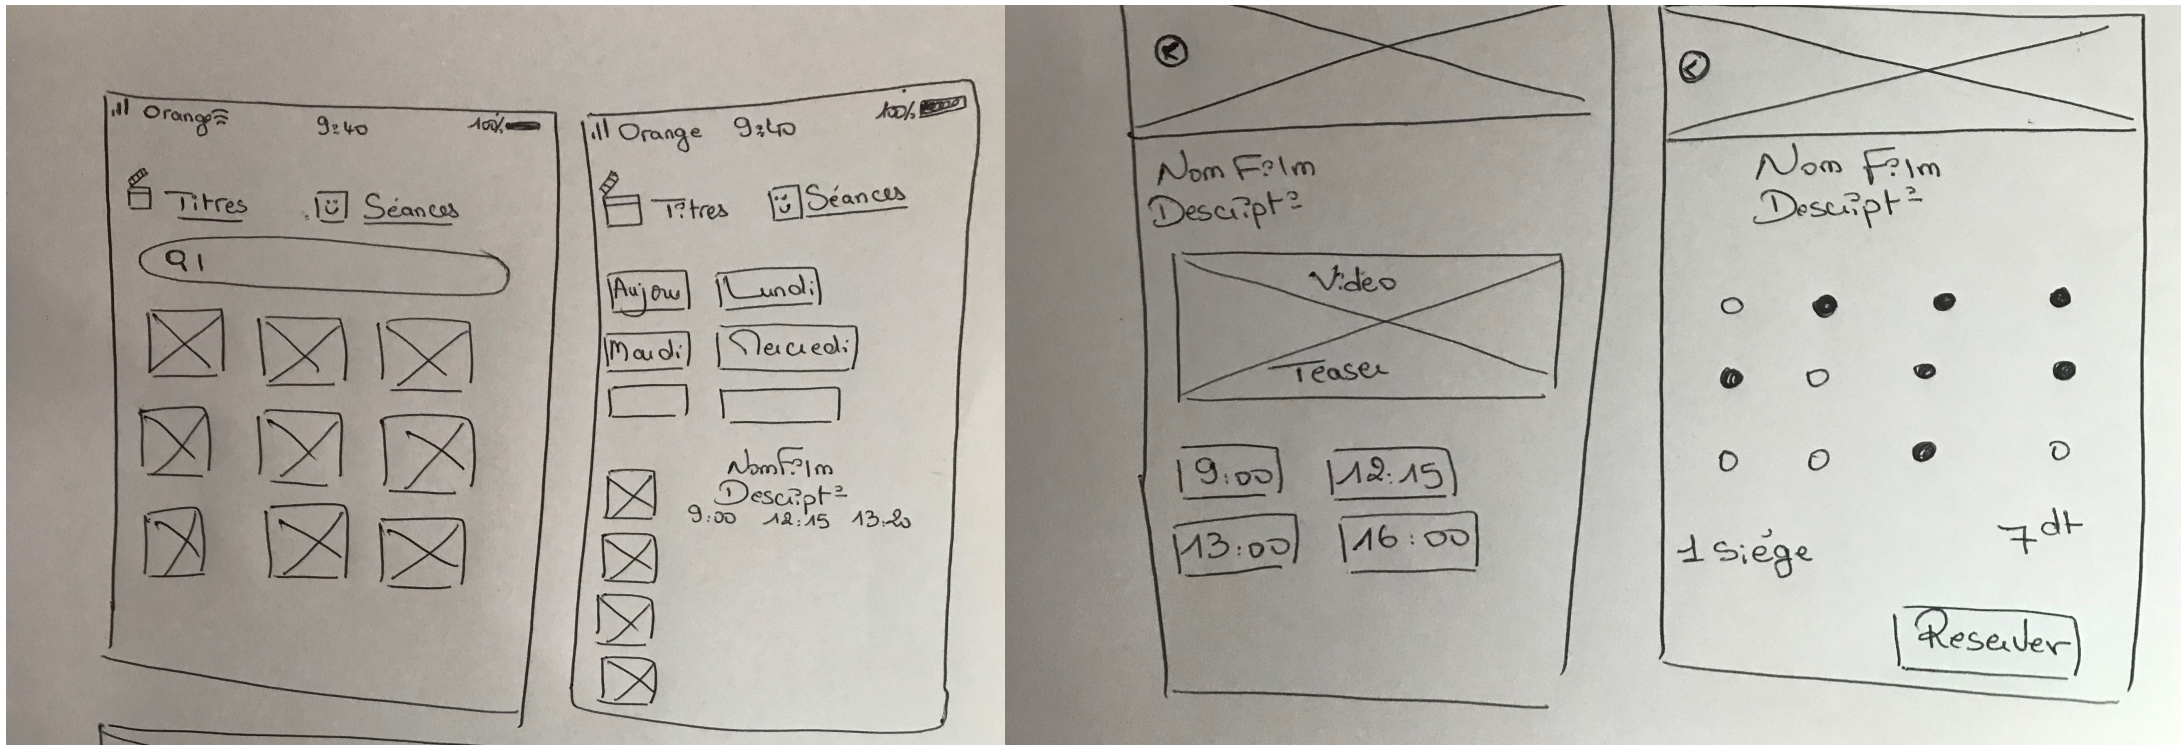 Orange 9:40 100%
Titres Séances
Orange 9:40 100%
Titres Séances
Aujou Lundi
Mardi Mercredi
Nom Film
Descript°
9:00 12:15 13:20
Nom Film
Descript°
Video
Teaser
9:00 12:15
13:00 16:00
Nom Film
Descript°
1 siége 7 dt
Reserver